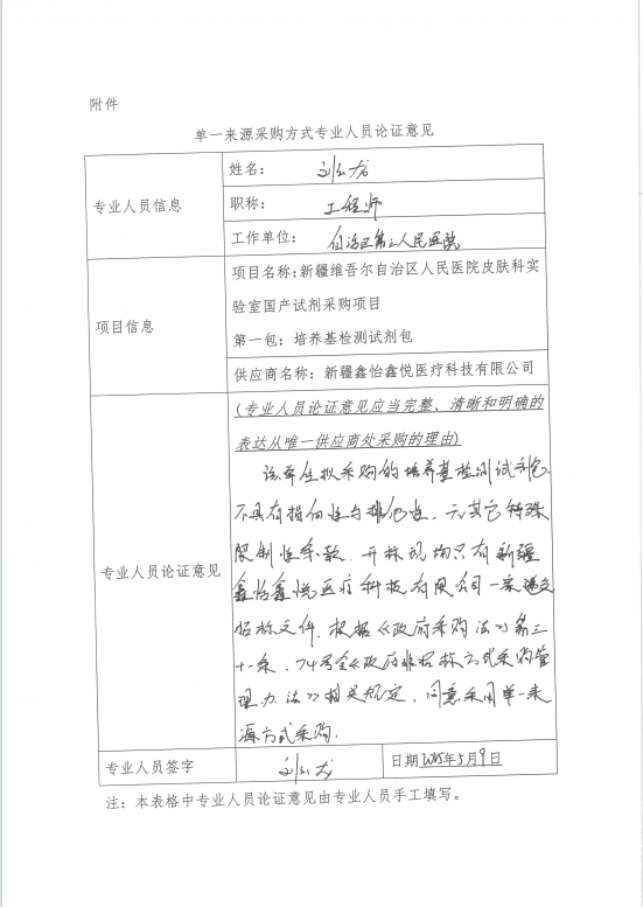 附件
单一来源采购方式专业人员论证意见
专业人员信息
姓名：
职称： 工程师
工作单位： 自治区第二人民医院
项目信息
项目名称：新疆维吾尔自治区人民医院皮肤科实
验室国产试剂采购项目
第一包：培养基检测试剂包
供应商名称：新疆鑫怡鑫悦医疗科技有限公司
专业人员论证意见
（专业人员论证意见应当完整、清晰和明确的
表达从唯一供应商处采购的理由）
该单位拟采购的培养基检测试剂包
不具有指向性与排他性，无其它特殊
限制性条款，开标现均只有新疆
鑫怡鑫悦医疗科技有限公司一家递交
招标文件，根据《政府采购法》第三
十一条，74号令《政府非招标方式采购管
理办法》相关规定，同意采用单一来
源方式采购.
专业人员签字
日期 2025年5月9日
注：本表格中专业人员论证意见由专业人员手工填写。